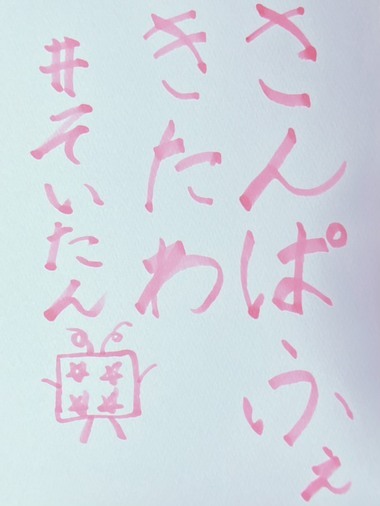 さんぱふぇ
きたわ
#そいたん